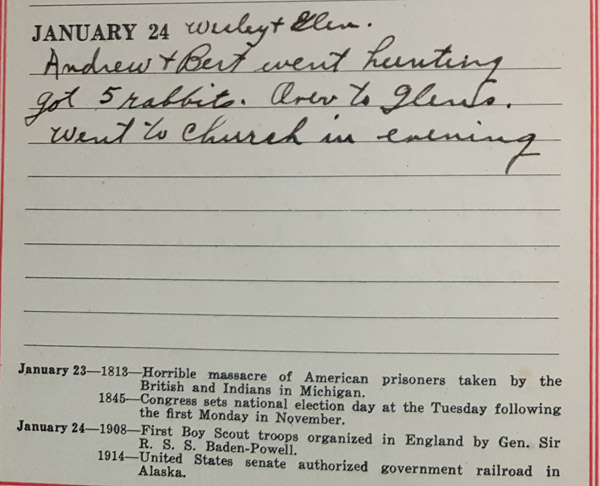 JANUARY 24 Wesley + Glen.
Andrew + Bert went hunting
got 5 rabbits. Over to Glens.
Went to Church in evening
January 23—1813—Horrible massacre of American prisoners taken by the
British and Indians in Michigan.
1845—Congress sets national election day at the Tuesday following
the first Monday in November.
January 24—1908—First Boy Scout troops organized in England by Gen. Sir
R. S. S. Baden-Powell.
1914—United States senate authorized government railroad in
Alaska.